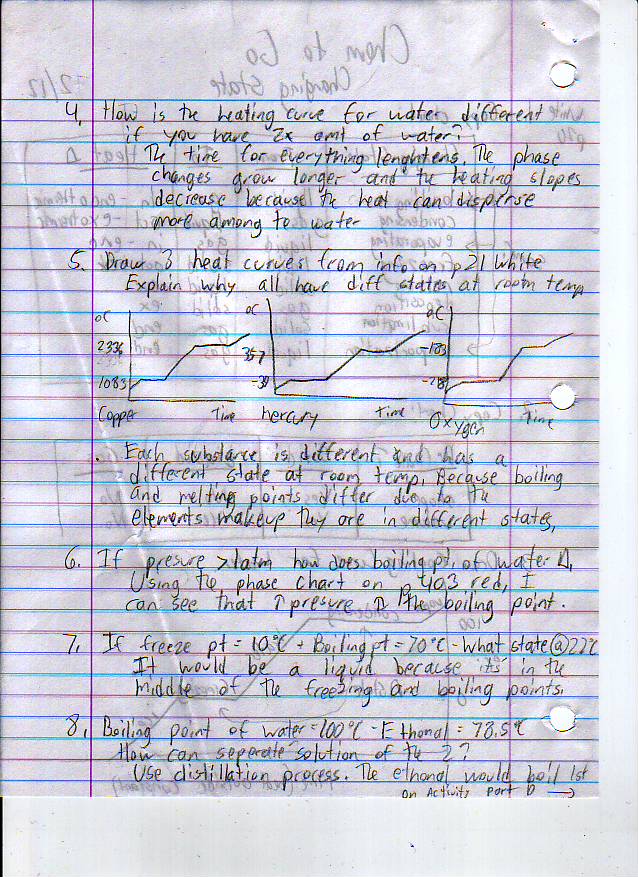 Chem to Go
Changing State
2/12
4. How is the heating curve for water different
if you have 2x amt of water?
The time for everything lenghtens. The phase
changes grow longer and the heating slopes
decrease because the heat can disperse
more among to water
5. Draw 3 heat curves from info on p21 White
Explain why all have diff states at room temp
°C °C °C
2336 357 -183
1083 -39 -218
Copper Time hercury Time Oxygen Time
Each substance is different and has a
different state at room temp. Because boiling
and melting points differ due to the
elements makeup they are in different states.
6. If presure >1atm how does boiling pt. of water Δ.
Using the phase chart on p 403 red, I
can see that ↑ presure ↑ the boiling point.
7. If freeze pt = 10°C + Boiling pt = 70°C - What state @ 22°C
It would be a liquid because its in the
middle of the freezing and boiling points.
8. Boiling point of water = 100°C - Ethonal = 78.5°C
How can seperate solution of the 2?
Use distillation process. The ethonal would boil 1st
on Activity part D →